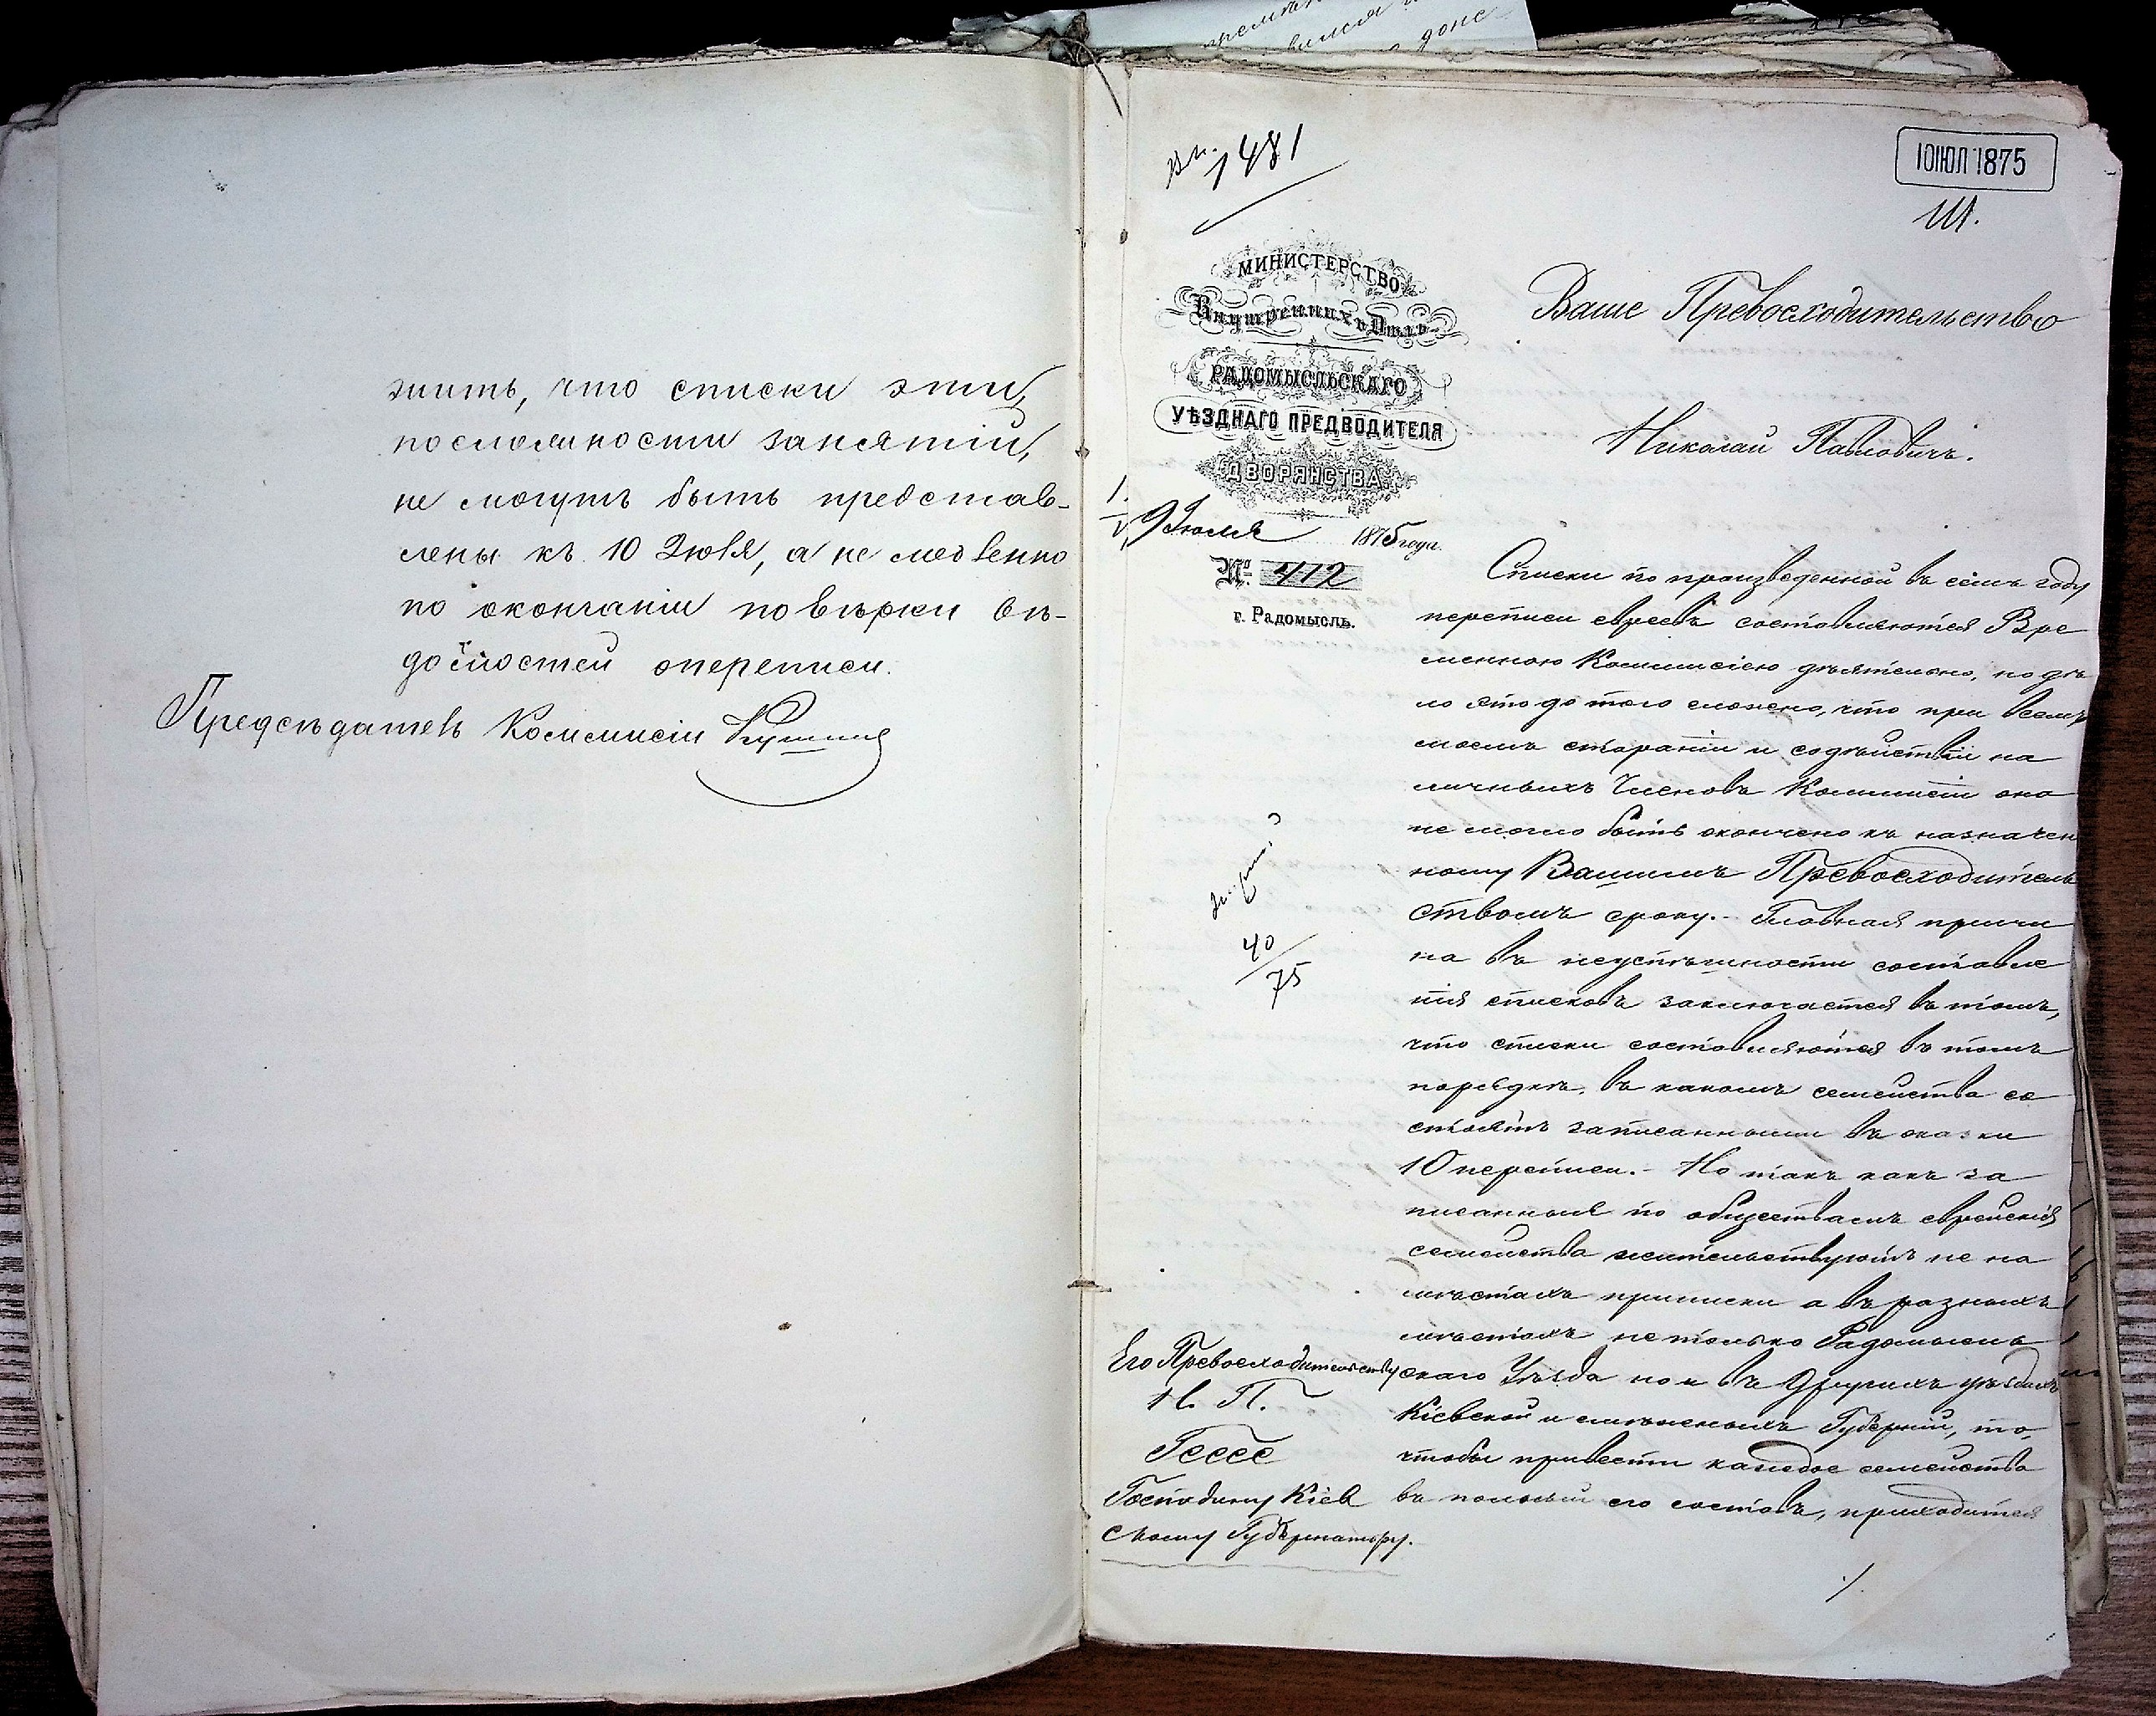 времен
вился
доне
жить, что списки эти,
по сложности занятій,
не могутъ быть представ-
лены къ 10 Іюля, а не медленно
по окончаніи повѣрки вѣ-
домостей о переписи.
Предсѣдатель Коммисіи
1481
10 ІЮЛ 1875
Ш.
МИНИСТЕРСТВО
Внутреннихъ Дѣлъ
РАДОМЫСЛЬСКАГО
УѢЗДНАГО ПРЕДВОДИТЕЛЯ
ДВОРЯНСТВА
9 Іюля 1875 года.
№ 412
г. Радомысль.
Ваше Превосходительство
Николай Павловичъ.
Списки по произведенной въ семъ году
переписи евреевъ составляются Вре
менною Коммисіею дѣятельно, но дѣ
ло это до того сложно, что при всемъ
моемъ стараніи и содѣйствіи на
личныхъ Членовъ Коммисіи оно
не могло быть окончено къ назначен
ному Вашимъ Превосходитель
ствомъ сроку. - Главная причи
на въ неуспѣшности составле
нія списковъ заключается въ томъ,
что списки составляются въ томъ
порядкѣ, въ какомъ семейства со
стоятъ записанными въ сказки
10 переписи. - Но такъ какъ за
писанныя по обществамъ еврейскія
семейства жительствуютъ не на
мѣстахъ приписки а въ разныхъ
мѣстахъ не только Радомысль
скаго Уѣзда но и въ другихъ уѣздахъ
Кіевской и смежныхъ Губерній, то,
чтобы привести каждое семейство
въ полный его составъ, приходится
40
75
Его Превосходительству
Н. П.
Гессе
Господину Кіев
скому Губернатору.